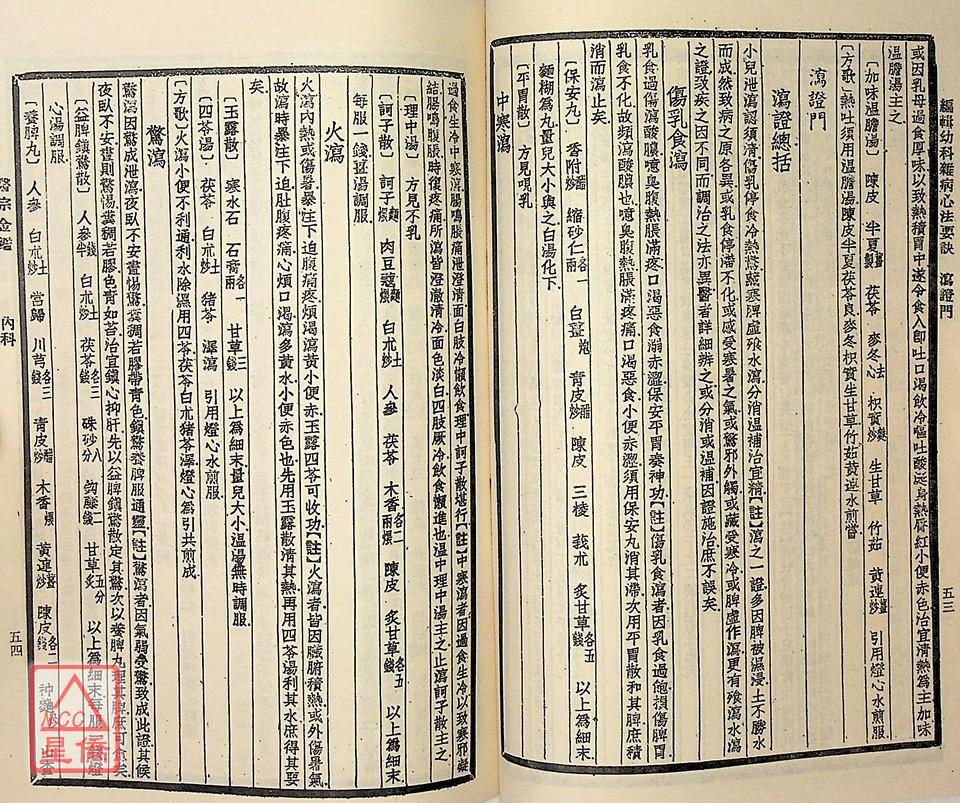 編輯幼科雜病心法要訣 瀉證門 五三
或因乳母過食厚味以致熱積胃中遂令食入卽吐口渴飲冷嘔吐酸涎身熱脣紅小便赤色治宜清熱爲主加味
溫膽湯主之
〔加味溫膽湯〕 陳皮 半夏薑製 茯苓 麥冬去心 枳實麩炒 生甘草 竹茹 黃連薑炒 引用燈心水煎服
〔方歌〕熱吐須用溫膽湯陳皮半夏茯苓良麥冬枳實生甘草竹茹黃連水煎嘗
瀉證門
瀉證總括
小兒泄瀉認須清傷乳停食冷熱驚藏寒脾虛飱水瀉分消溫補治宜精【註】瀉之一證多因脾被濕浸土不勝水
而成然致病之原各異或乳食停滯不化或感受寒暑之氣或驚邪外觸或藏受寒冷或脾虛作瀉更有飱瀉水瀉
之證致疾之因不同而調治之法亦異醫者詳細辨之或分消或溫補因證施治庶不誤矣
傷乳食瀉
乳食過傷瀉酸膿噫臭腹熱脹滿疼口渴惡食溺赤澀保安平胃奏神功【註】傷乳食瀉者因乳食過飽損傷脾胃
乳食不化故頻瀉酸膿也噫臭腹熱脹滿疼痛口渴惡食小便赤澀須用保安丸消其滯次用平胃散和其脾庶積
消而瀉止矣
〔保安丸〕 香附醋炒 縮砂仁各一兩 白薑炮 青皮醋炒 陳皮 三稜 莪朮 炙甘草各五錢 以上爲細末
麵糊爲丸量兒大小與之白湯化下
〔平胃散〕 方見呪乳
中寒瀉
過食生冷中寒瀉腸鳴脹痛泄澄清面白肢冷懶飲食理中訶子散堪行【註】中寒瀉者因過食生冷以致寒邪凝
結腸鳴腹脹時復疼痛所瀉皆澄澈清冷面色淡白四肢厥冷飲食懶進也溫中理中湯主之止瀉訶子散主之
〔理中湯〕 方見不乳
〔訶子散〕 訶子麵煨 肉豆蔻麵煨 白朮土炒 人參 茯苓 木香各一兩煨 陳皮 炙甘草各五錢 以上爲細末
每服一錢薑湯調服
火瀉
火瀉內熱或傷暑暴注下迫腹痛疼煩渴瀉黃小便赤玉露四苓可收功【註】火瀉者皆因臟腑積熱或外傷暑氣
故瀉時暴注下迫肚腹疼痛心煩口渴瀉多黃水小便赤色也先用玉露散清其熱再用四苓湯利其水庶得其要
矣
〔玉露散〕 寒水石 石膏各一兩 甘草三錢 以上爲細末量兒大小溫湯無時調服
〔四苓湯〕 茯苓 白朮土炒 猪苓 澤瀉 引用燈心水煎服
〔方歌〕火瀉小便不利通利水除濕用四苓茯苓白朮猪苓澤燈心爲引共煎成
驚瀉
驚瀉因驚成泄瀉夜臥不安晝惕驚糞稠若膠帶青色鎭驚養脾服通靈【註】驚瀉者因氣弱受驚致成此證其候
夜臥不安晝則驚惕糞稠若膠色青如苔治宜鎭心抑肝先以益脾鎭驚散定其驚次以養脾丸理其脾庶可愈矣
〔益脾鎭驚散〕 人參錢半 白朮土炒 茯苓各三錢 硃砂八分 鉤藤二錢 甘草炙五分 以上爲細末每服一錢燈
心湯調服
〔養脾丸〕 人參 白朮土炒 當歸 川芎各三錢 青皮醋炒 木香煨 黃連薑炒 陳皮各二錢 神麯 山查
醫宗金鑑 內科 五四
NCC
星僑